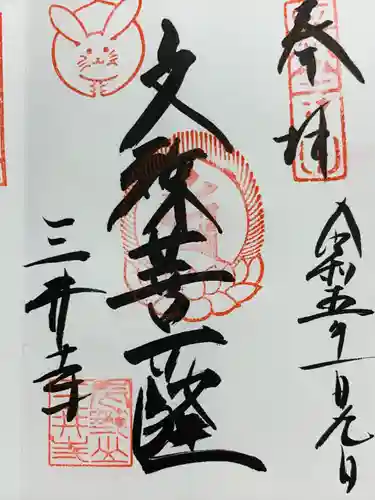 奉拝
令和五年一月元日
文殊菩薩
三井寺